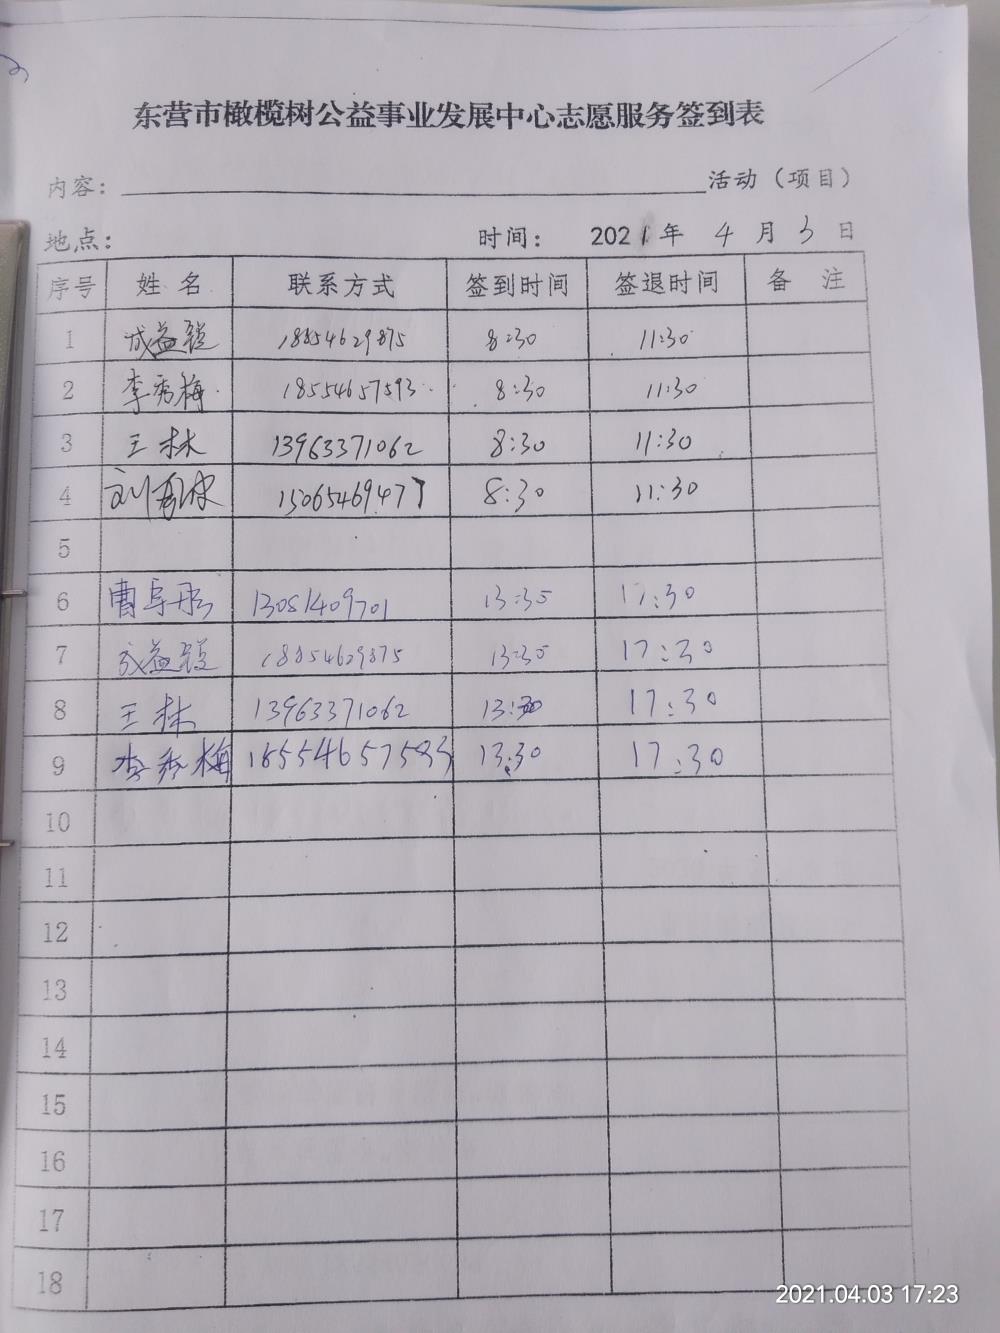 东营市橄榄树公益事业发展中心志愿服务签到表
内容： 活动（项目）
地点： 时间： 2021年 4 月 3 日
序号 姓 名 联系方式 签到时间 签退时间 备 注
1 成益锐 18854629875 8:30 11:30
2 李秀梅 18554657593 8:30 11:30
3 王林 13963371062 8:30 11:30
4 刘 15065469477 8:30 11:30
5
6 曹 13051409701 13:30 17:30
7 成益锐 18854629875 13:30 17:30
8 王林 13963371062 13:30 17:30
9 李秀梅 18554657593 13:30 17:30
10
11
12
13
14
15
16
17
18
2021.04.03 17:23